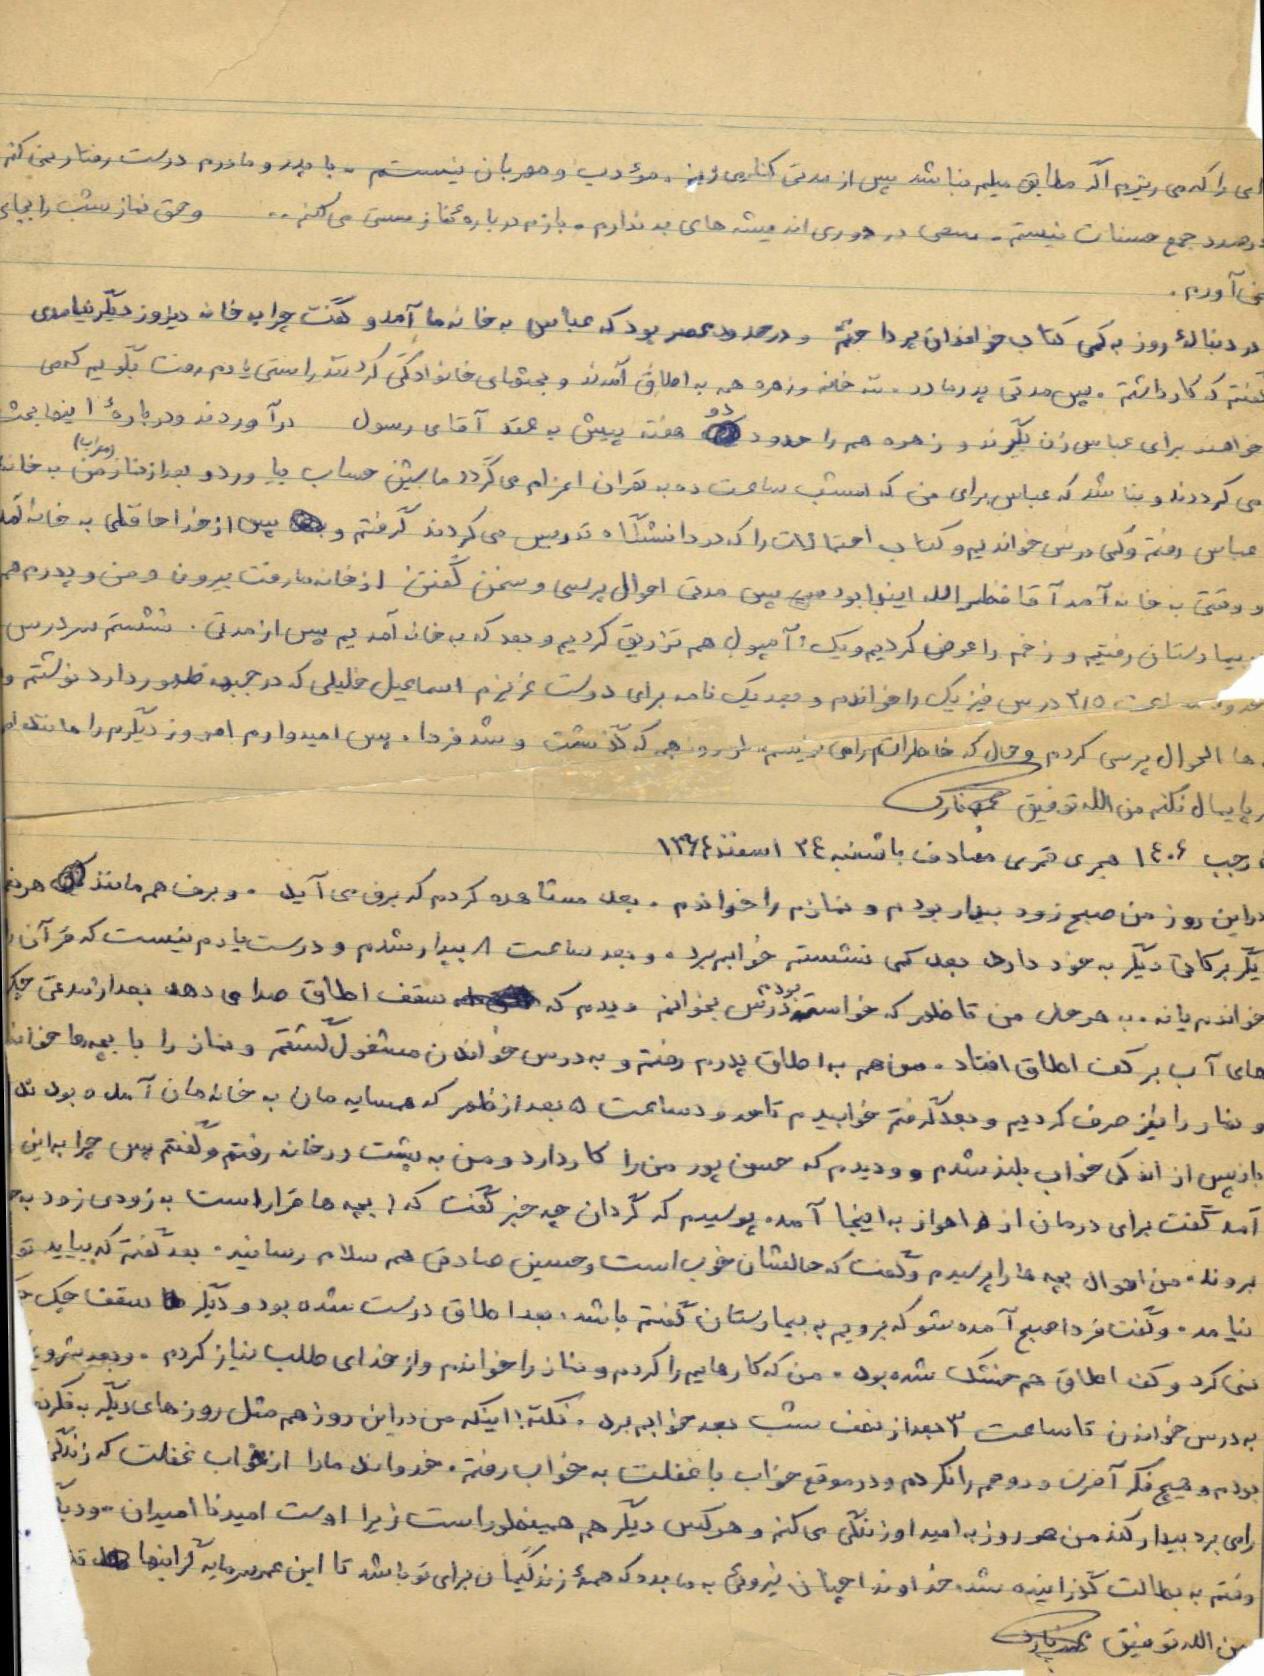 ای را که می ریزم اگر مطابق میلم نباشد پس از مدتی کناری ریز . مؤدب و مهربان نیستم . با پدر و مادرم درست رفتار نمی کنم
درصدد جمع حسنات نیستم . سعی در دوری اندیشه های بد ندارم . بازم درباره نماز سستی می کنم .. وحق نماز شب را بجای
نمی آورم .
در دنبالهٔ روز به کمی کتاب خواندن پرداختم و در حدود عصر بود که عباس به خانه ما آمد و گفت چرا به خانه دیروز دیگر نیامدی
گفتم که کار داشتم . پس مدتی پدر مادر . ننه خانم و زهره همه به اطاق آمدند و بحثهای خانوادگی کردند راستی یادم رفت بگویم که می
خواهند برای عباس زن بگیرند و زهره هم را حدود دو هفته پیش به عقد آقای رسول در آوردند و دربارهٔ اینها بحث
می کردند و بنا شد که عباس برای من که امشب ساعت ده به تهران اعزام می گردد ماشین حساب بیاورد و بعد از نماز من (مغرب) به خانه
عباس رفتم و کمی درس خواندیم و کتاب احتمالات را که در دانشگاه تدریس می کردند گرفتم و پس از خداحافظی به خانه آمد
و وقتی به خانه آمد آقا فضل الله اینجا بود پس مدتی احوال پرسی و سخن گفتن از خانه ما رفت بیرون و من و پدرم هم
بیمارستان رفتیم و زخم را عوض کردیم و یک آمپول هم تزریق کردیم و بعد که به خانه آمدیم پس از مدتی . نشستم سر درس
ساعت ۳/۵ درس فیزیک را خواندم و بعد یک نامه برای دوست عزیزم اسماعیل خلیلی که در جبهه حضور دارد نوشتم و
ها احوال پرسی کردم و حال که خاطراتم را می نویسم این روز هم که گذشت و شد فردا . پس امیدوارم امروز دیگرم را مانند
پایمال نکنم من الله توفیق
رجب ۱۴۰۶ هجری قمری مصادف باشنبه ۲۴ اسفند ۱۳۶۴
در این روز من صبح زود بیدار بودم و نمازم را خواندم . بعد مشاهده کردم که برف می آید . و برف هم مانند
دیگر برکاتی دیگر به خود دارد بعد کمی نشستم خوابم برد . و بعد ساعت ۸ بیدار شدم و درست یادم نیست که قرآن
خواندم یا نه . به هر حال من تا ظهر که خواسته بودم درس بخوانم دیدم که سقف اطاق صدا می دهد بعد از مدتی چکه
های آب بر کف اطاق افتاد . من هم به اطاق پدرم رفتم و به درس خواندن مشغول گشتم و نماز را با بچه ها خواندم
و نهار را نیز صرف کردیم و بعد گرفتم خوابیدم تا حدود ساعت ۵ بعد از ظهر که همسایه مان به خانه مان آمده بودند
باز پس از اندکی خواب بلند شدم و دیدم که حسن پور من را کار دارد و من به پشت در خانه رفتم و گفتم پس چرا به این
آمد گفت برای درمان از اهواز به اینجا آمده پرسیدم که گردان چه خبر گفت که ! بچه ها قرار است به زودی زود به
بروند . من احوال بچه ها را پرسیدم و گفت که حالشان خوب است و حسین صادقی هم سلام رسانید . بعد گفتم که بیاید تو
نیامد . و گفت فردا صبح آماده شو که برویم به بیمارستان گفتم باشد . بعد اطاق درست شده بود و دیگر سقف چک
نمی کرد و کف اطاق هم خشک شده بود . من که کارهایم را کردم و نماز را خواندم و از خدای طلب نیاز کردم . و بعد شروع
به درس خواندن تا ساعت ۳ بعد از نصف شب بعد خوابم برد . نکته ! اینکه من در این روز هم مثل روزهای دیگر به فکر
بودم و هیچ فکر آخرت و روحم را نکردم و در موقع خواب با غفلت به خواب رفتم . خداوند ما را از خواب غفلت که زندگی
را می برد بیدار کند من هر روز به امید او زندگی می کنم و هر کس دیگر هم همینطور است زیرا اوست امید ناامیدان .
وقتم به بطالت گذرانیده شد . خداوند اچنان نیروئی به ما بده که همهٔ زندگیمان برای تو باشد تا این عمر سرمایه گرانبها
من الله توفیق